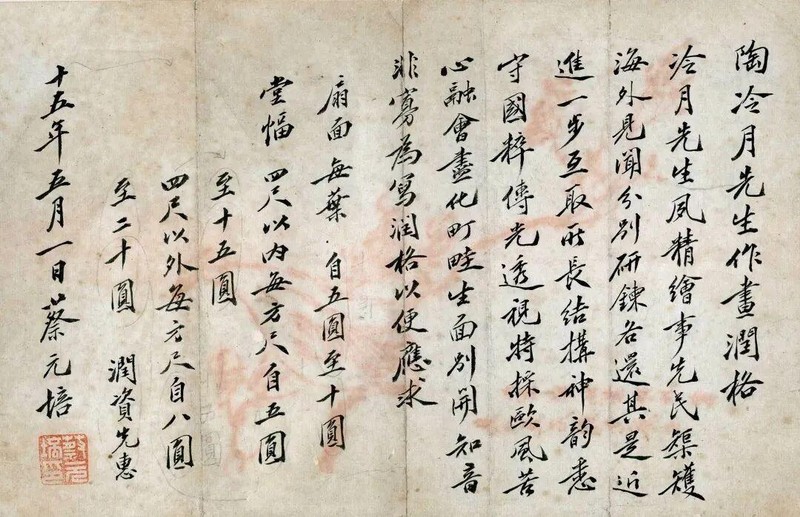 陶冷月先生作畫潤格
冷月先生夙精繪事先民榘矱
海外見聞分別研鍊各還其是近
進一步互取所長結搆神韵悉
守國粹傳光透視特採歐風苦
心融會盡化町畦生面別開知音
非寡為寫潤格以便應求
扇面 每葉 自五圓至十圓
堂幅 四尺以內每方尺自五圓
至十五圓
四尺以外每方尺自八圓
至二十圓 潤資先惠
十五年五月一日 蔡元培